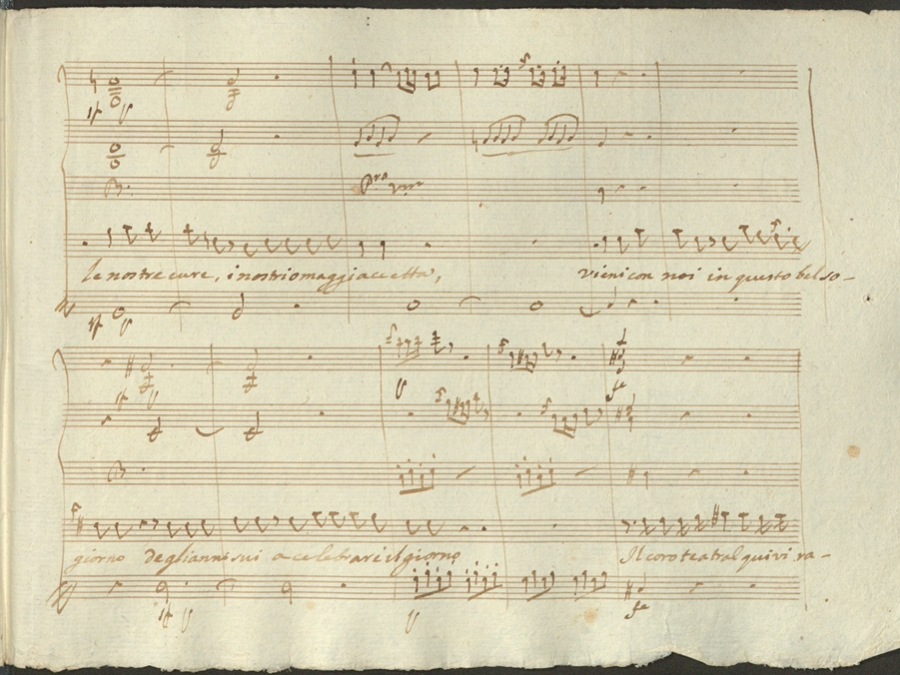 le nostre cure, i nostri omaggi accetta, vieni con noi in questo bel so-
giorno degli anni sui a celebrare il giorno Il coro teatral quivi ra-